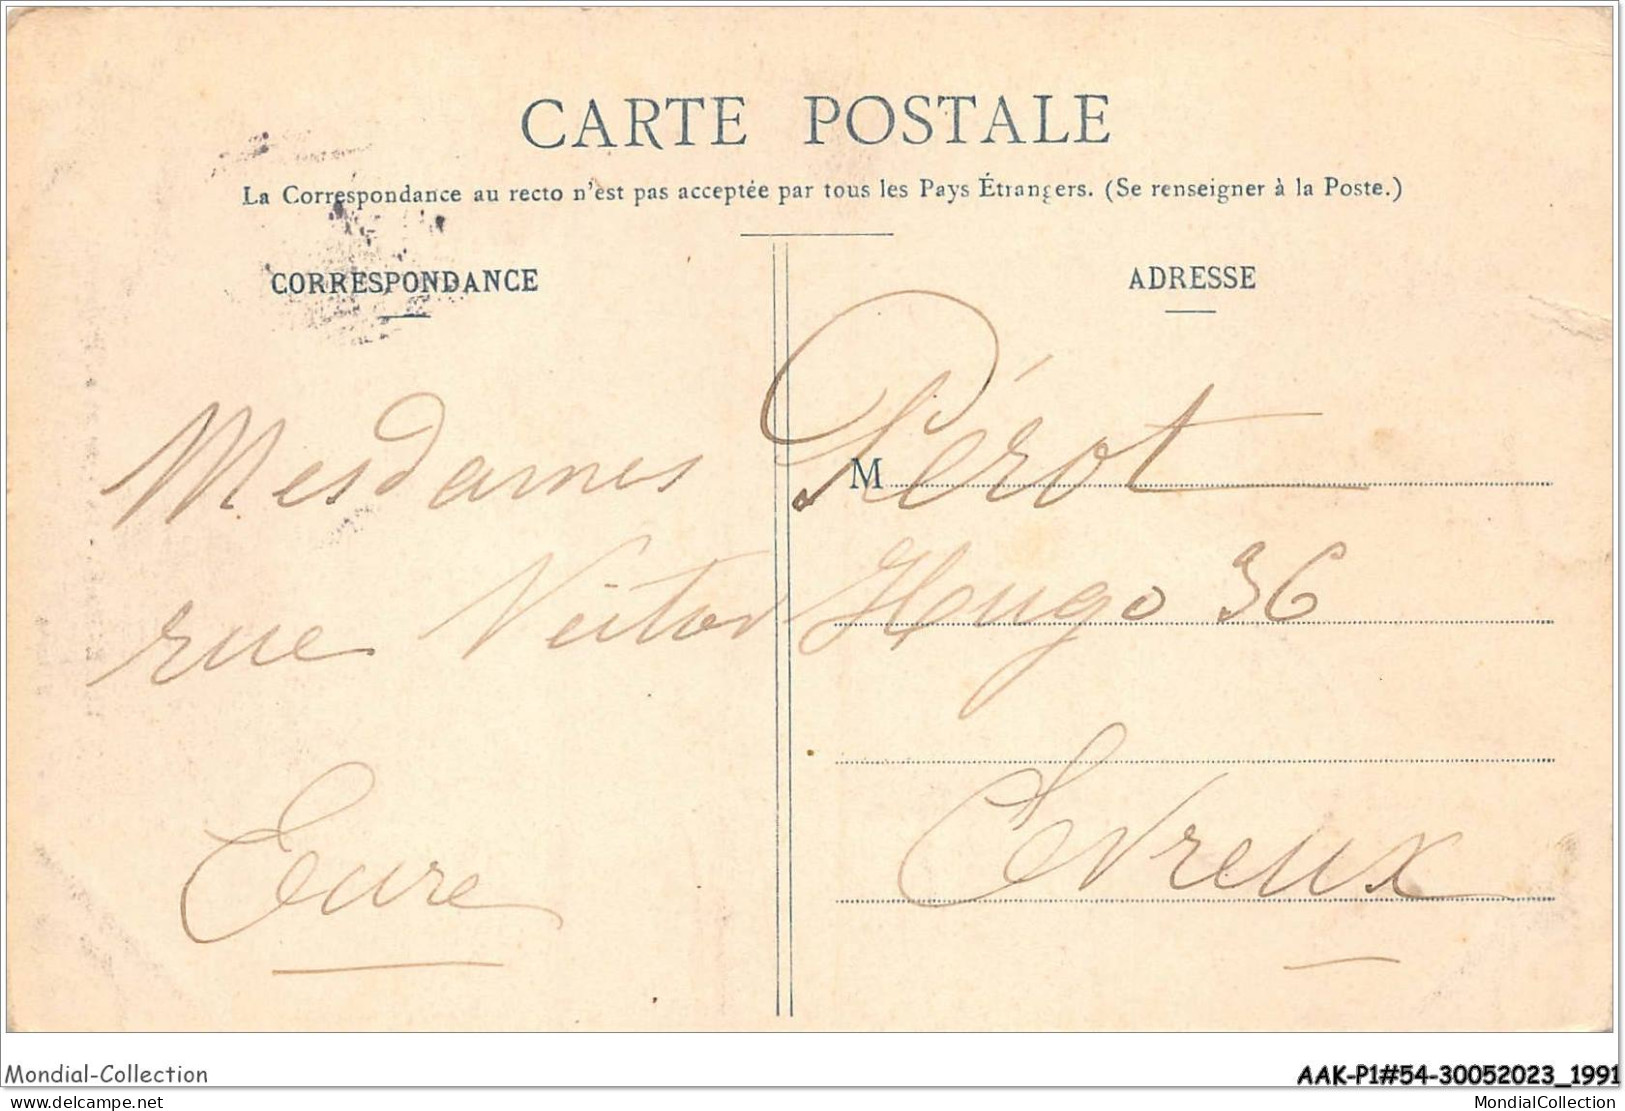 CARTE POSTALE
La Correspondance au recto n'est pas acceptée par tous les Pays Étrangers. (Se renseigner à la Poste.)
CORRESPONDANCE
ADRESSE
M
Mesdames Pérot
rue Victor Hugo 36
Evreux
Eure
Mondial-Collection
AAK-P1#54-30052023_1991
delcampe.net
MondialCollection